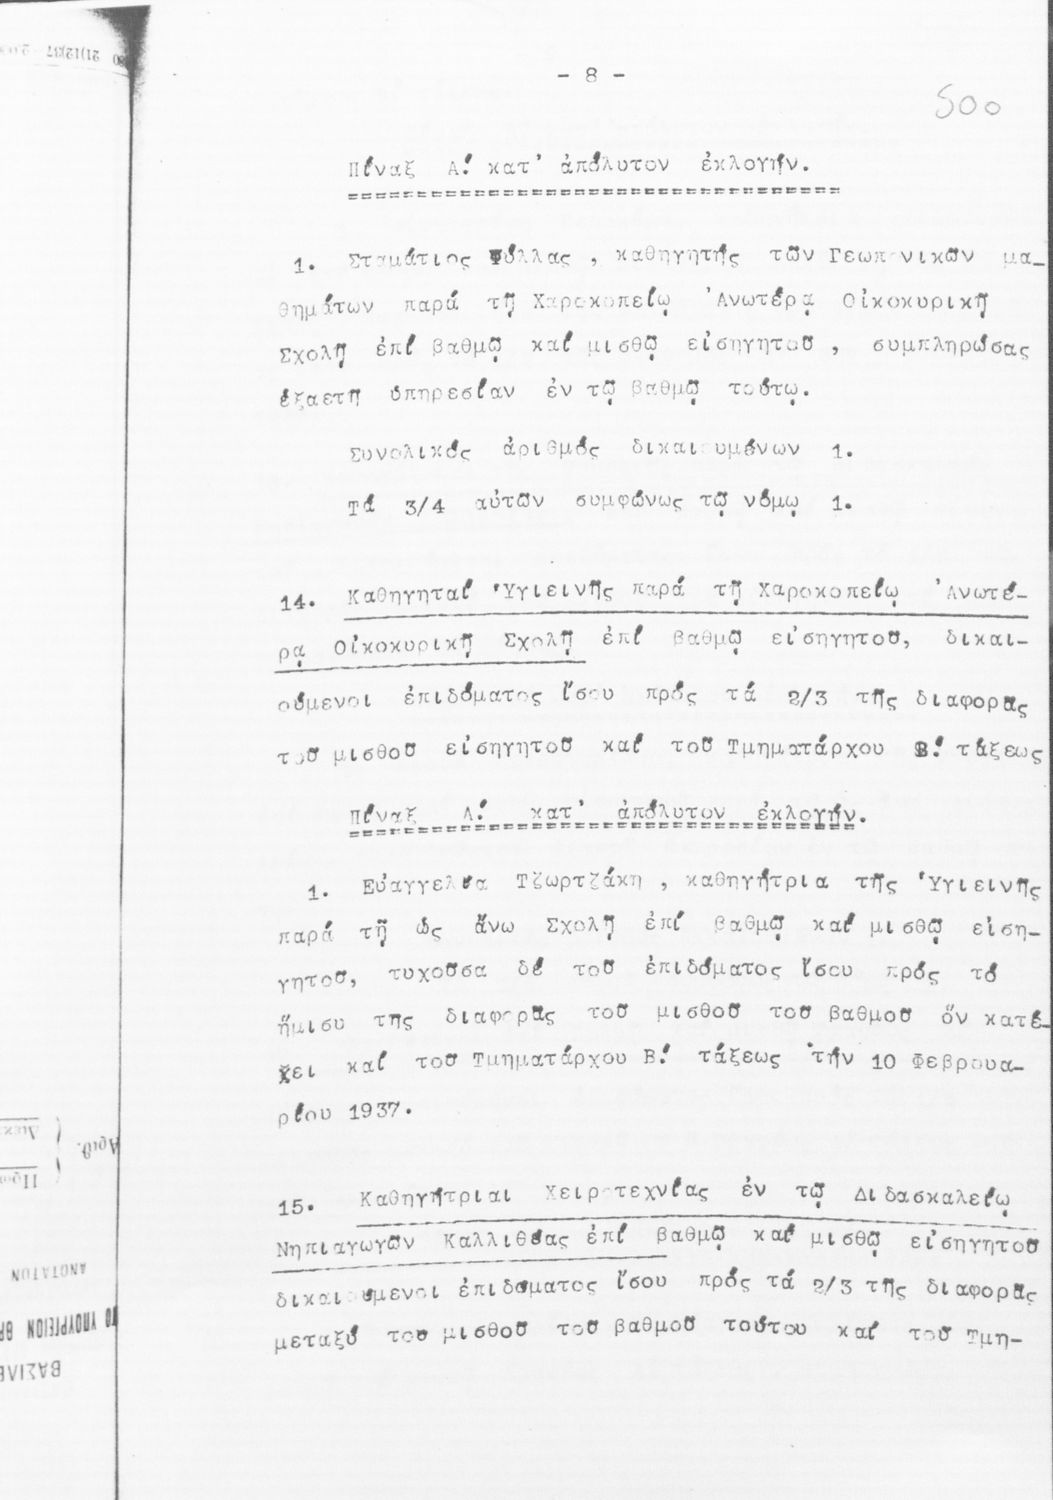 - 8 -
500
Πίναξ Α! κατ' ἀπόλυτον ἐκλογήν.
1. Σταμάτιος Ψύλλας , καθηγητής τῶν Γεωπονικῶν μα-
θημάτων παρά τῇ Χαροκοπείῳ Ἀνωτέρᾳ Οἰκοκυρικῇ
Σχολῇ ἐπί βαθμῷ καί μισθῷ εἰσηγητοῦ , συμπληρώσας
ἑξαετῆ ὑπηρεσίαν ἐν τῷ βαθμῷ τούτῳ.
Συνολικός ἀριθμός δικαιουμένων 1.
Τά 3/4 αὐτῶν συμφώνως τῷ νόμῳ 1.
14. Καθηγηταί Ὑγιεινῆς παρά τῇ Χαροκοπείῳ Ἀνωτέ-
ρᾳ Οἰκοκυρικῇ Σχολῇ ἐπί βαθμῷ εἰσηγητοῦ, δικαι-
ούμενοι ἐπιδόματος ἴσου πρός τά 2/3 τῆς διαφορᾶς
τοῦ μισθοῦ εἰσηγητοῦ καί τοῦ Τμηματάρχου Β! τάξεως
Πίναξ Α! κατ' ἀπόλυτον ἐκλογήν.
1. Εὐαγγελία Τζωρτζάκη , καθηγήτρια τῆς Ὑγιεινῆς
παρά τῇ ὡς ἄνω Σχολῇ ἐπί βαθμῷ καί μισθῷ εἰση-
γητοῦ, τυχοῦσα δέ τοῦ ἐπιδόματος ἴσου πρός τό
ἥμισυ της διαφορᾶς τοῦ μισθοῦ τοῦ βαθμοῦ ὅν κατέ-
χει καί τοῦ Τμηματάρχου Β! τάξεως τήν 10 Φεβρουα-
ρίου 1937.
15. Καθηγήτριαι Χειροτεχνίας ἐν τῷ Διδασκαλείῳ
Νηπιαγωγῶν Καλλιθέας ἐπί βαθμῷ καί μισθῷ εἰσηγητοῦ
δικαιούμενοι ἐπιδόματος ἴσου πρός τά 2/3 τῆς διαφορᾶς
μεταξύ τοῦ μισθοῦ τοῦ βαθμοῦ τούτου καί τοῦ Τμη-
21)12)37
Ἀριθ.
ΑΝΩΤΑΤΟΝ
ΥΠΟΥΡΓΕΙΟΝ
ΒΑΣΙΛΕ